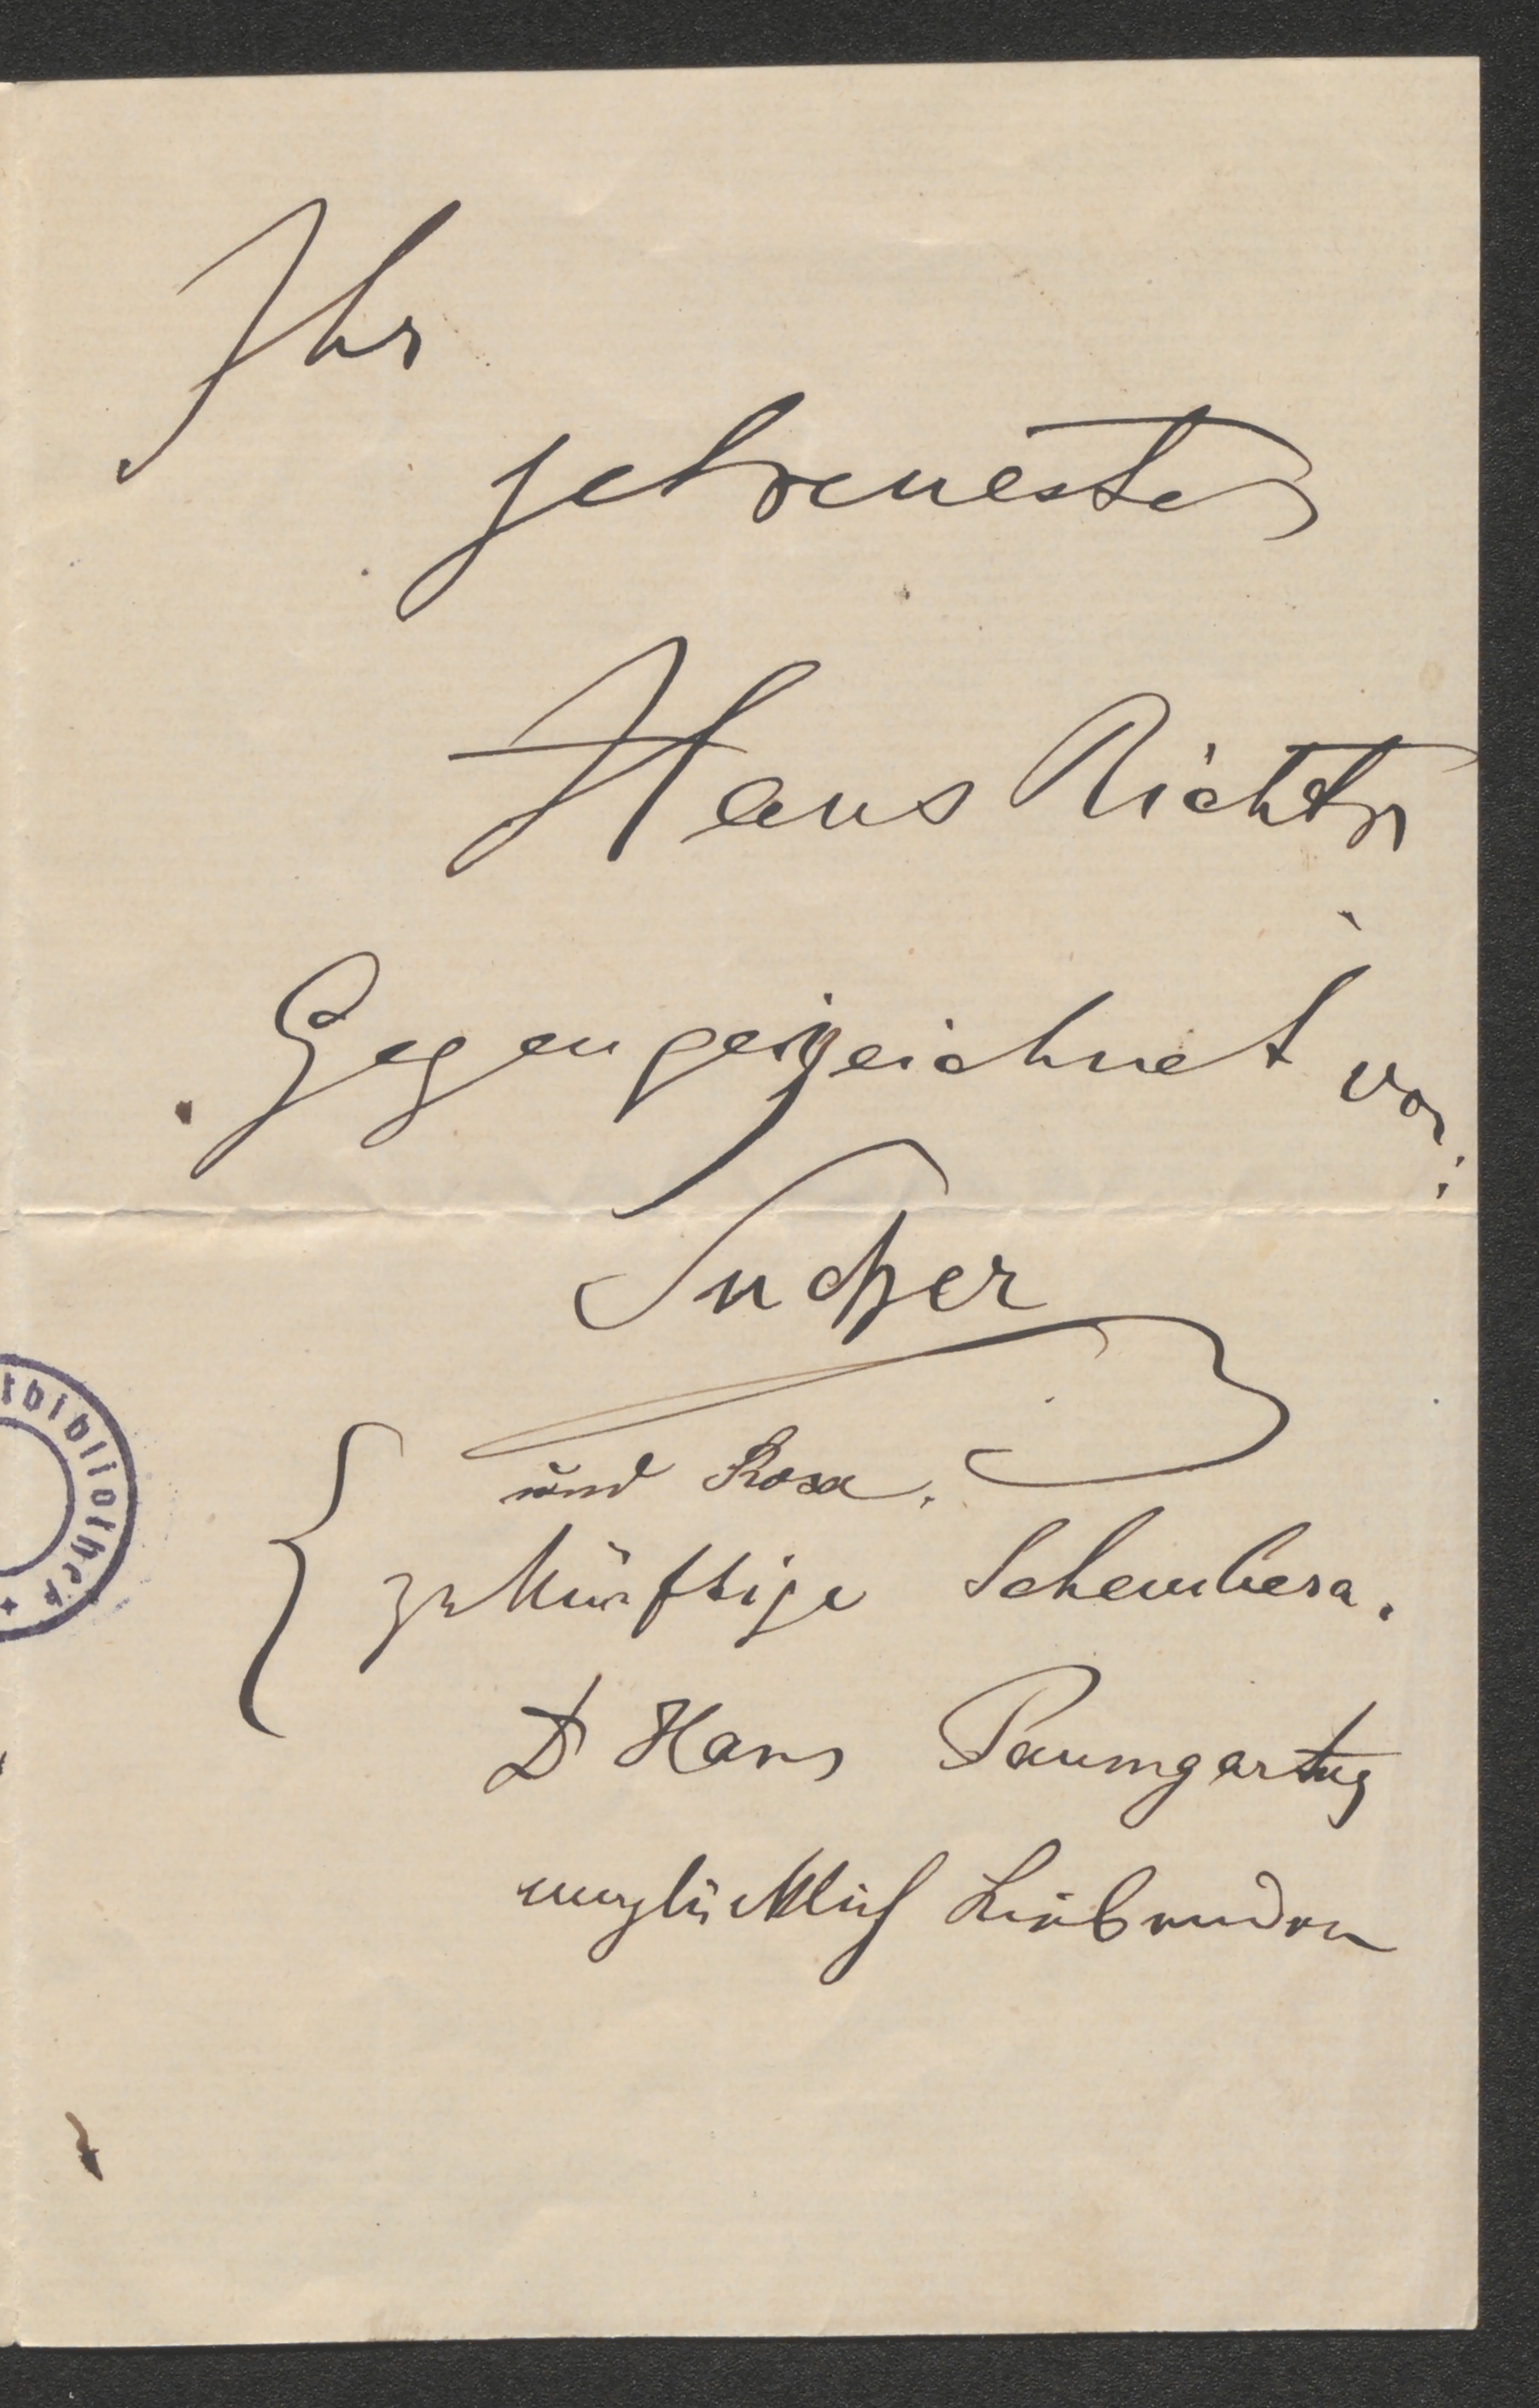 Ihr
getreuester
Hans Richter
Gegengezeichnet von:
Sucher
und Rosa.
zukünftige Schembera.
Dr Hans Paumgartner
unglücklich Liebenden
tbibliothek